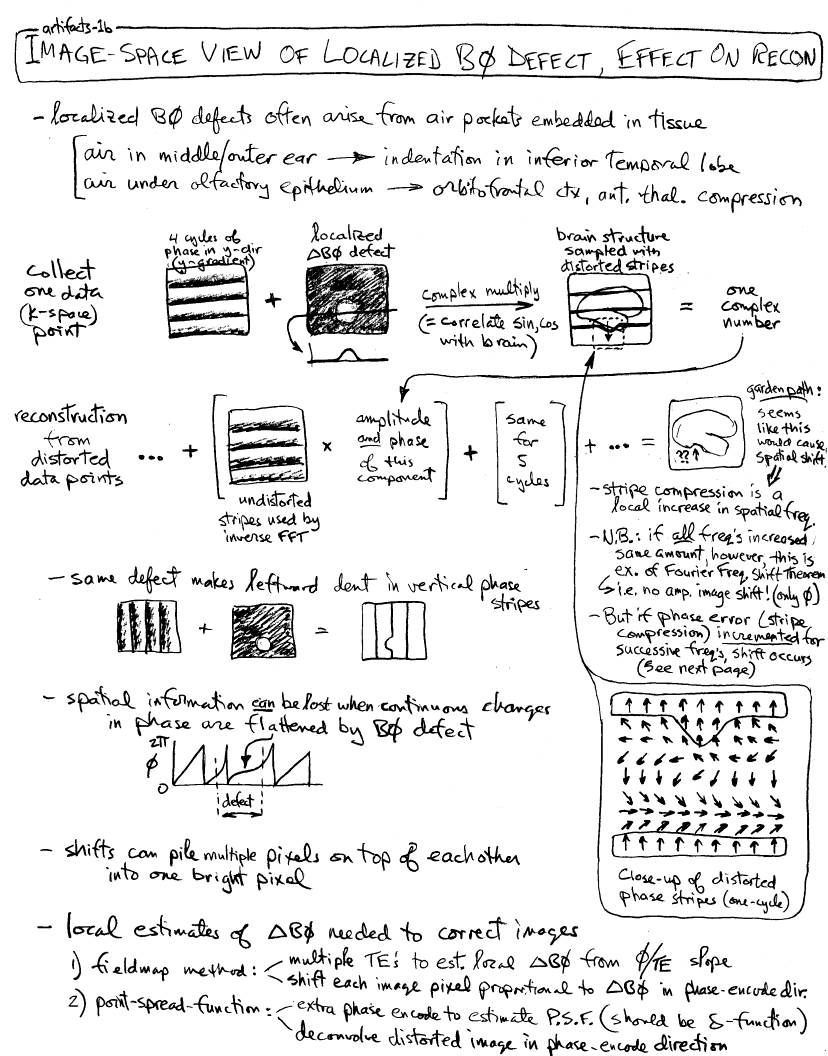 artifacts-1b
IMAGE-SPACE VIEW OF LOCALIZED BØ DEFECT, EFFECT ON RECON
- localized BØ defects often arise from air pockets embedded in tissue
air in middle/outer ear → indentation in inferior temporal lobe
air under olfactory epithelium → orbitofrontal ctx, ant. thal. compression
collect
one data
(k-space)
point
4 cycles of
phase in y-dir
(y-gradient)
+
localized
ΔBØ defect
complex multiply
(= correlate sin, cos
with brain)
brain structure
sampled with
distorted stripes
=
one
complex
number
reconstruction
from
distorted
data points
... +
undistorted
stripes used by
inverse FFT
x
amplitude
and phase
of this
component
+
same
for
5
cycles
+ ... =
??↑
garden path:
seems
like this
would cause
spatial shift
- stripe compression is a
local increase in spatial freq.
- N.B.: if all freq's increased
same amount, however, this is
ex. of Fourier Freq. Shift Theorem
↳ i.e. no amp. image shift! (only Ø)
- But if phase error (stripe
compression) incremented for
successive freq's, shift occurs
(see next page)
- same defect makes leftward dent in vertical phase
stripes
+
=
- spatial information can be lost when continuous changes
in phase are flattened by BØ defect
2π
ϕ
0
defect
Close-up of distorted
phase stripes (one-cycle)
- shifts can pile multiple pixels on top of each other
into one bright pixel
- local estimates of ΔBØ needed to correct images
1) fieldmap method: multiple TE's to est. local ΔBØ from ϕ/TE slope
shift each image pixel proportional to ΔBØ in phase-encode dir.
2) point-spread-function: extra phase encode to estimate P.S.F. (should be δ-function)
deconvolve distorted image in phase-encode direction